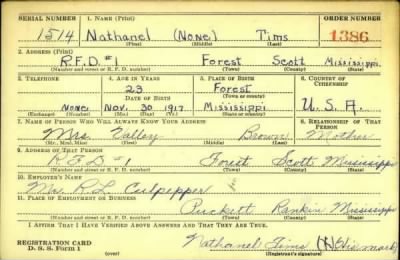 SERIAL NUMBER 1. NAME (Print) ORDER NUMBER
1514 Nathanel (None) Tims 1386
(First) (Middle) (Last)
2. ADDRESS (Print)
R.F.D. #1 Forest Scott Mississippi
(Number and street or R. F. D. number) (Town) (County) (State)
3. TELEPHONE 4. AGE IN YEARS 5. PLACE OF BIRTH 6. COUNTRY OF CITIZENSHIP
23 Forest
DATE OF BIRTH (Town or county)
None Nov. 30 1917 Mississippi U.S.A.
(Exchange) (Number) (Mo.) (Day) (Yr.) (State or country)
7. NAME OF PERSON WHO WILL ALWAYS KNOW YOUR ADDRESS 8. RELATIONSHIP OF THAT PERSON
Mrs. Valley Brown Mother
(Mr., Mrs., Miss) (First) (Middle) (Last)
9. ADDRESS OF THAT PERSON
R.F.D #1 Forest Scott Mississippi
(Number and street or R. F. D. number) (Town) (County) (State)
10. EMPLOYER'S NAME
Mr. R.L. Culpepper
11. PLACE OF EMPLOYMENT OR BUSINESS
Puckett Rankin Mississippi
(Number and street or R. F. D. number) (Town) (County) (State)
I AFFIRM THAT I HAVE VERIFIED ABOVE ANSWERS AND THAT THEY ARE TRUE.
REGISTRATION CARD
D. S. S. Form 1 (over) Nathanel Tims (X) (His mark)
(Registrant's signature)